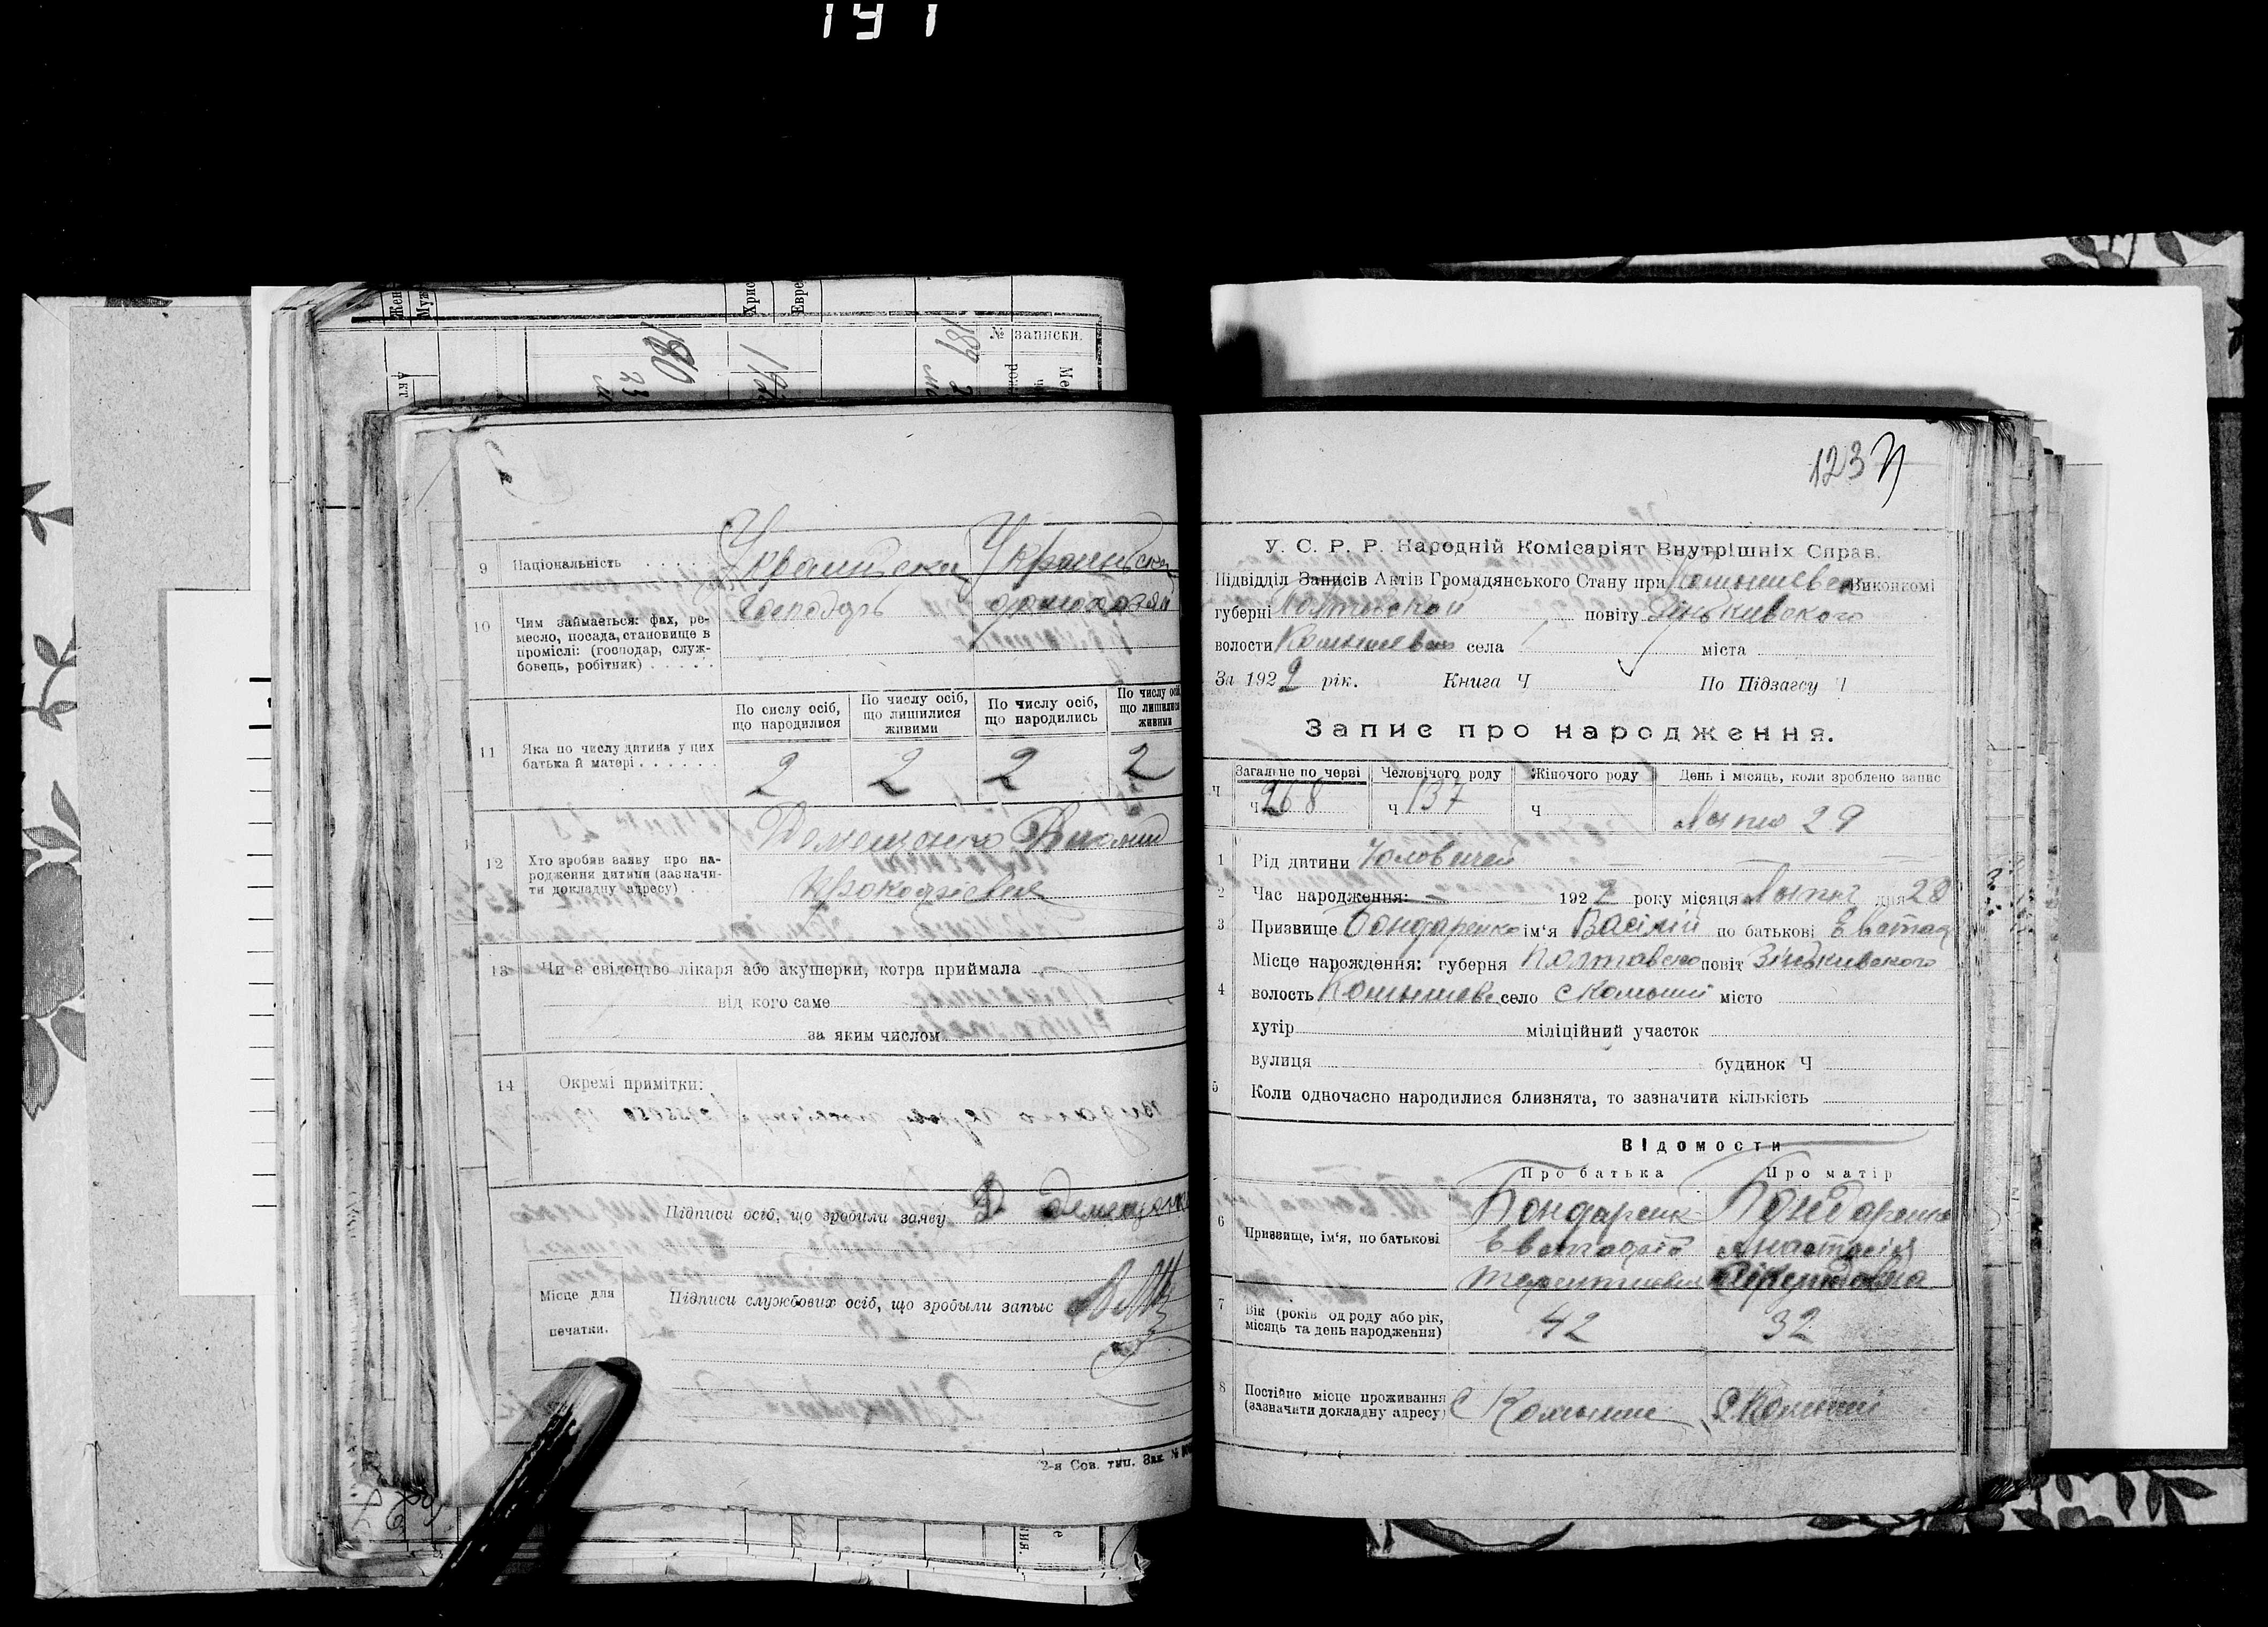 191
Жен
Муж
Хрис
Евре
№ записки.
Акт
180
189
9 Національність . . . . Украинска Украинска
10 Чим займається: фах, ре-
месло, посада, становище в
промислі: (господар, служ-
бовець, робітник) . . . . .
Господарь домохозяй
11 Яка по числу дитина у цих
батька й матері . . . . . .
По сислу осіб,
що народилися
По числу осіб,
що лишилися
живими
По числу осіб,
що народились
По числу осіб
що лишилися
живими
2 2 2 2
12 Хто зробив заяву про на-
родження дитини (зазначи-
ти докладну адресу) .
Демещонко
Прокофієвич
13 Чи є свідоцтво лікаря або акушерки, котра приймала
від кого саме
за яким числом
14 Окремі примітки:
Підписи осіб, що зробили заяву Д Демещонко
Місце для
печатки.
Підписи службових осіб, що зробыли запыс
2-я Сов. тип. Зак. №
123
У. С. Р. Р. Народній Комісаріят Внутрішніх Справ.
Підвідділ Записів Актів Громадянського Стану при Комышев Виконкомі
губерні Полтавской повіту Зіньківского
волости Комышев села міста
За 1922 рік. Книга Ч По Підзагсу Ч
Запис про народження.
Ч Загальне по черві Человічого роду Жіночого роду День і місяць, коли зроблено запис
Ч 268 Ч 137 Ч Липня 29
1 Рід дитини Чоловичей
2 Час народження: 1922 року місяця Липня дня 28
3 Призвище Бондаренко ім'я Васілій по батькові Евстаф
4 Місце нарождення: губерня Полтавско повіт Зіньківского
волость Комышев село с Комыши місто
хутір міліційний участок
вулиця будинок Ч
5 Коли одночасно народилися близнята, то зазначити кількість
Відомости
Про батька Про матір
6 Призвище, ім'я, по батькові
Бондаренк Бондаренко
Евстафій Анастасія
Терентиевич
7 Вік (років од роду або рік,
місяць та день народження)
42 32
8 Постійне місце проживання
(зазначити докладну адресу)
С Комыши С. Комыши